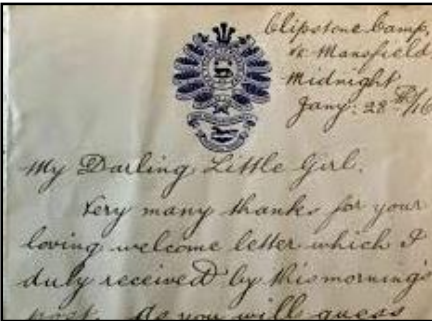 Clipstone Camp,
Nr Mansfield
Midnight
Jany: 28th/16
My Darling Little Girl,
Very many thanks for your
loving welcome letter which I
duly received by this morning's
post. As you will guess